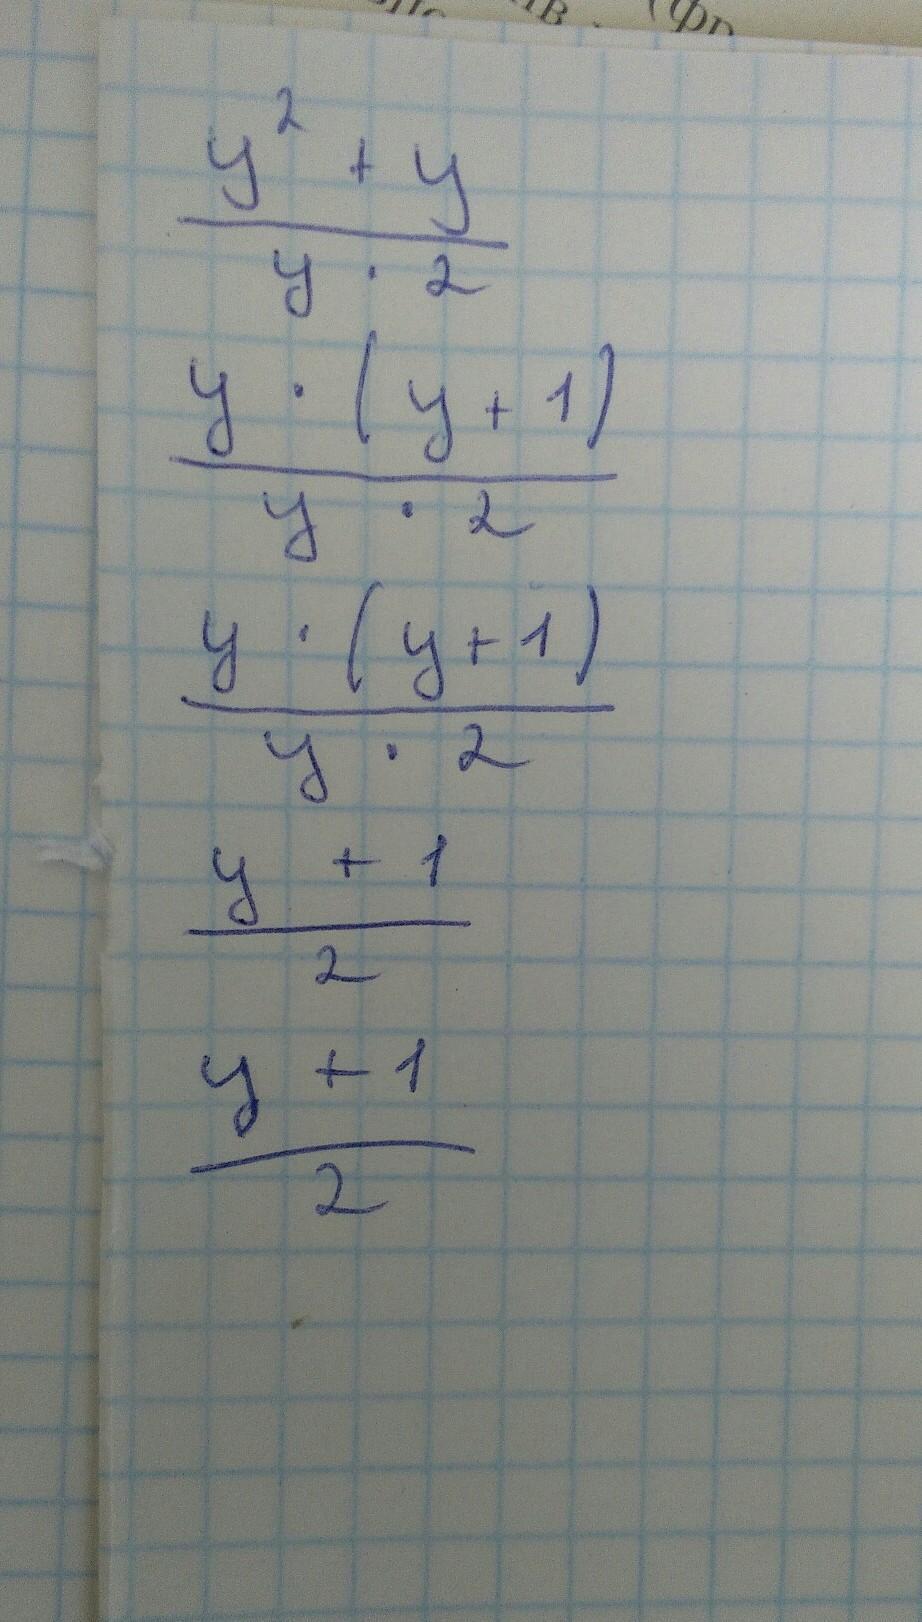 y² + y
y · 2
y · (y + 1)
y · 2
y · (y + 1)
y · 2
y + 1
2
y + 1
2